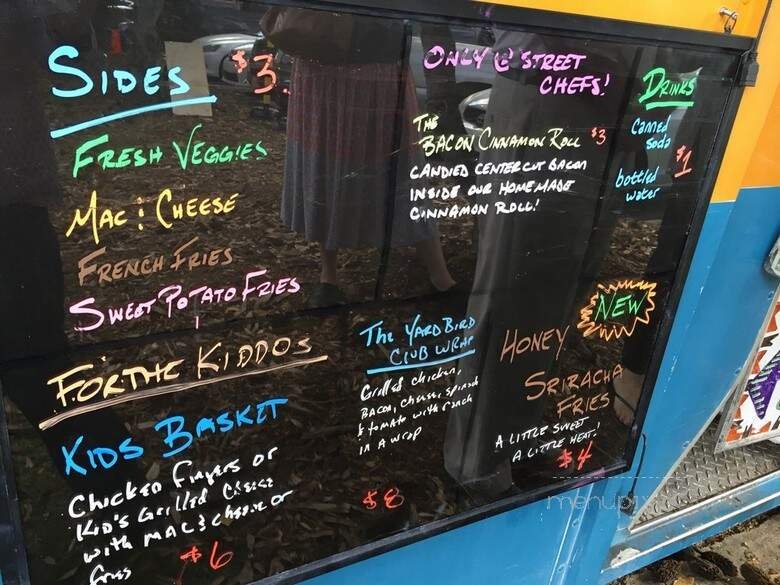 SIDES $3
FRESH VEGGIES
MAC & CHEESE
FRENCH FRIES
SWEET POTATO FRIES
FOR THE KIDDOS
KIDS BASKET
Chicken Fingers or
Kid's Grilled Cheese
with MAC & Cheese or
fries
$6
ONLY @ STREET
CHEFS!
THE
BACON CINNAMON ROLL $3
CANDIED CENTER CUT BACON
INSIDE OUR HOMEMADE
CINNAMON ROLL!
DRINKS
Canned
Soda
$1
bottled
water
The YARD BIRD
CLUB WRAP
Grilled chicken,
BACON, cheese, spinach
& tomato with ranch
in a wrap
$8
NEW
HONEY
SRIRACHA
FRIES
A LITTLE SWEET
A LITTLE HEAT!
$4
menupix